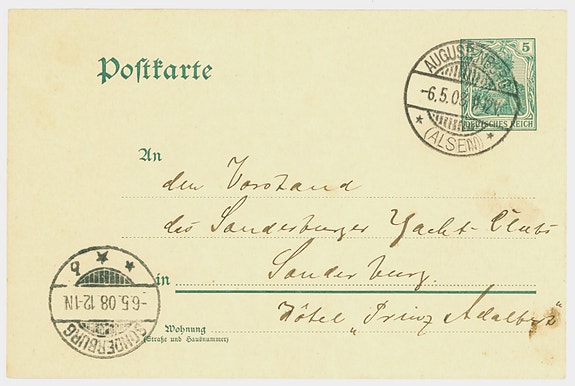 Postkarte
5
DEUTSCHES REICH
AUGUSTENBURG
-6.5.08
(ALSEN)
An
den Vorstand
des Sonderburger Yacht-Clubs
in Sonderburg.
Hôtel „Prinz Adalbert“
Wohnung
(Straße und Hausnummer)
-6.5.08 12-1N
SONDERBURG